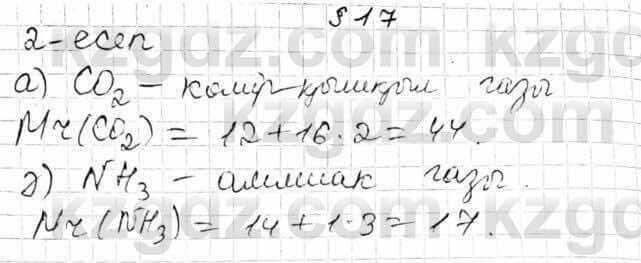 § 17
2-есеп
а) CO₂ – көмір-қышқыл газы
Mr(CO₂) = 12+16·2 = 44.
ә) NH₃ – аммиак газы.
Mr(NH₃) = 14+1·3 = 17.
kzgdz.com